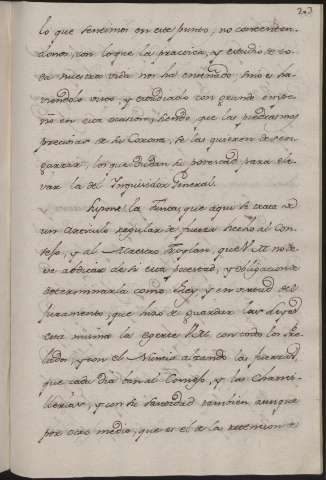 203
lo que sentimos en este punto, no contentan-
donos, con lo que la practica, y estudio de to-
da nuestra vida nos ha enseñado, sino es ha-
viendolo visto y estudiado con grande empe-
ño en esta ocasion, viendo, que las piedras mas
preciosas de su Corona, se las quieren desen-
garzar, los que dudan su potestad, para ele-
var la del Inquisidor General.
Supone la Junta, que aqui se trata de
un Articulo regular de fuerza hecho al Con-
sejo, y al Maestro Froylan, que V.M. no de-
ve abdicar de si esta potestad, y obligacion de
determinarla como Rey, y en virtud del
juramento, que hizo de guardar las Leyes
esta misma la egerce V.M. con todos los Pre-
lados, y con el Nuncio alzando las fuerzas,
que cada dia van al Consejo, y las Chanci-
llerias, y con su Santidad tambien aunque
por otro medio, que es el de la retencion de